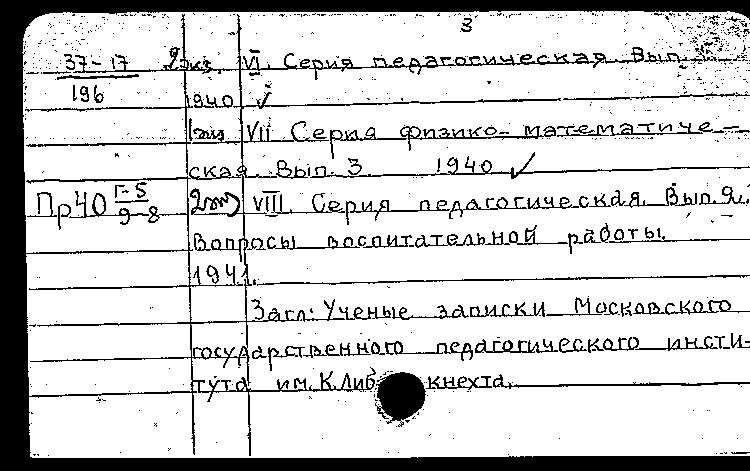 3
37-17 2экз. VI. Серия педагогическая. Вып.
196 1940 ✓
1экз VII Серия физико-математиче-
ская. Вып. 3 1940 ✓
Пр40 Г-5/9-8 VIII. Серия педагогическая. Вып. 2.
Вопросы воспитательной работы.
1941.
Загл: Ученые записки Московского
государственного педагогического инсти-
тута им. К. Либ кнехта.